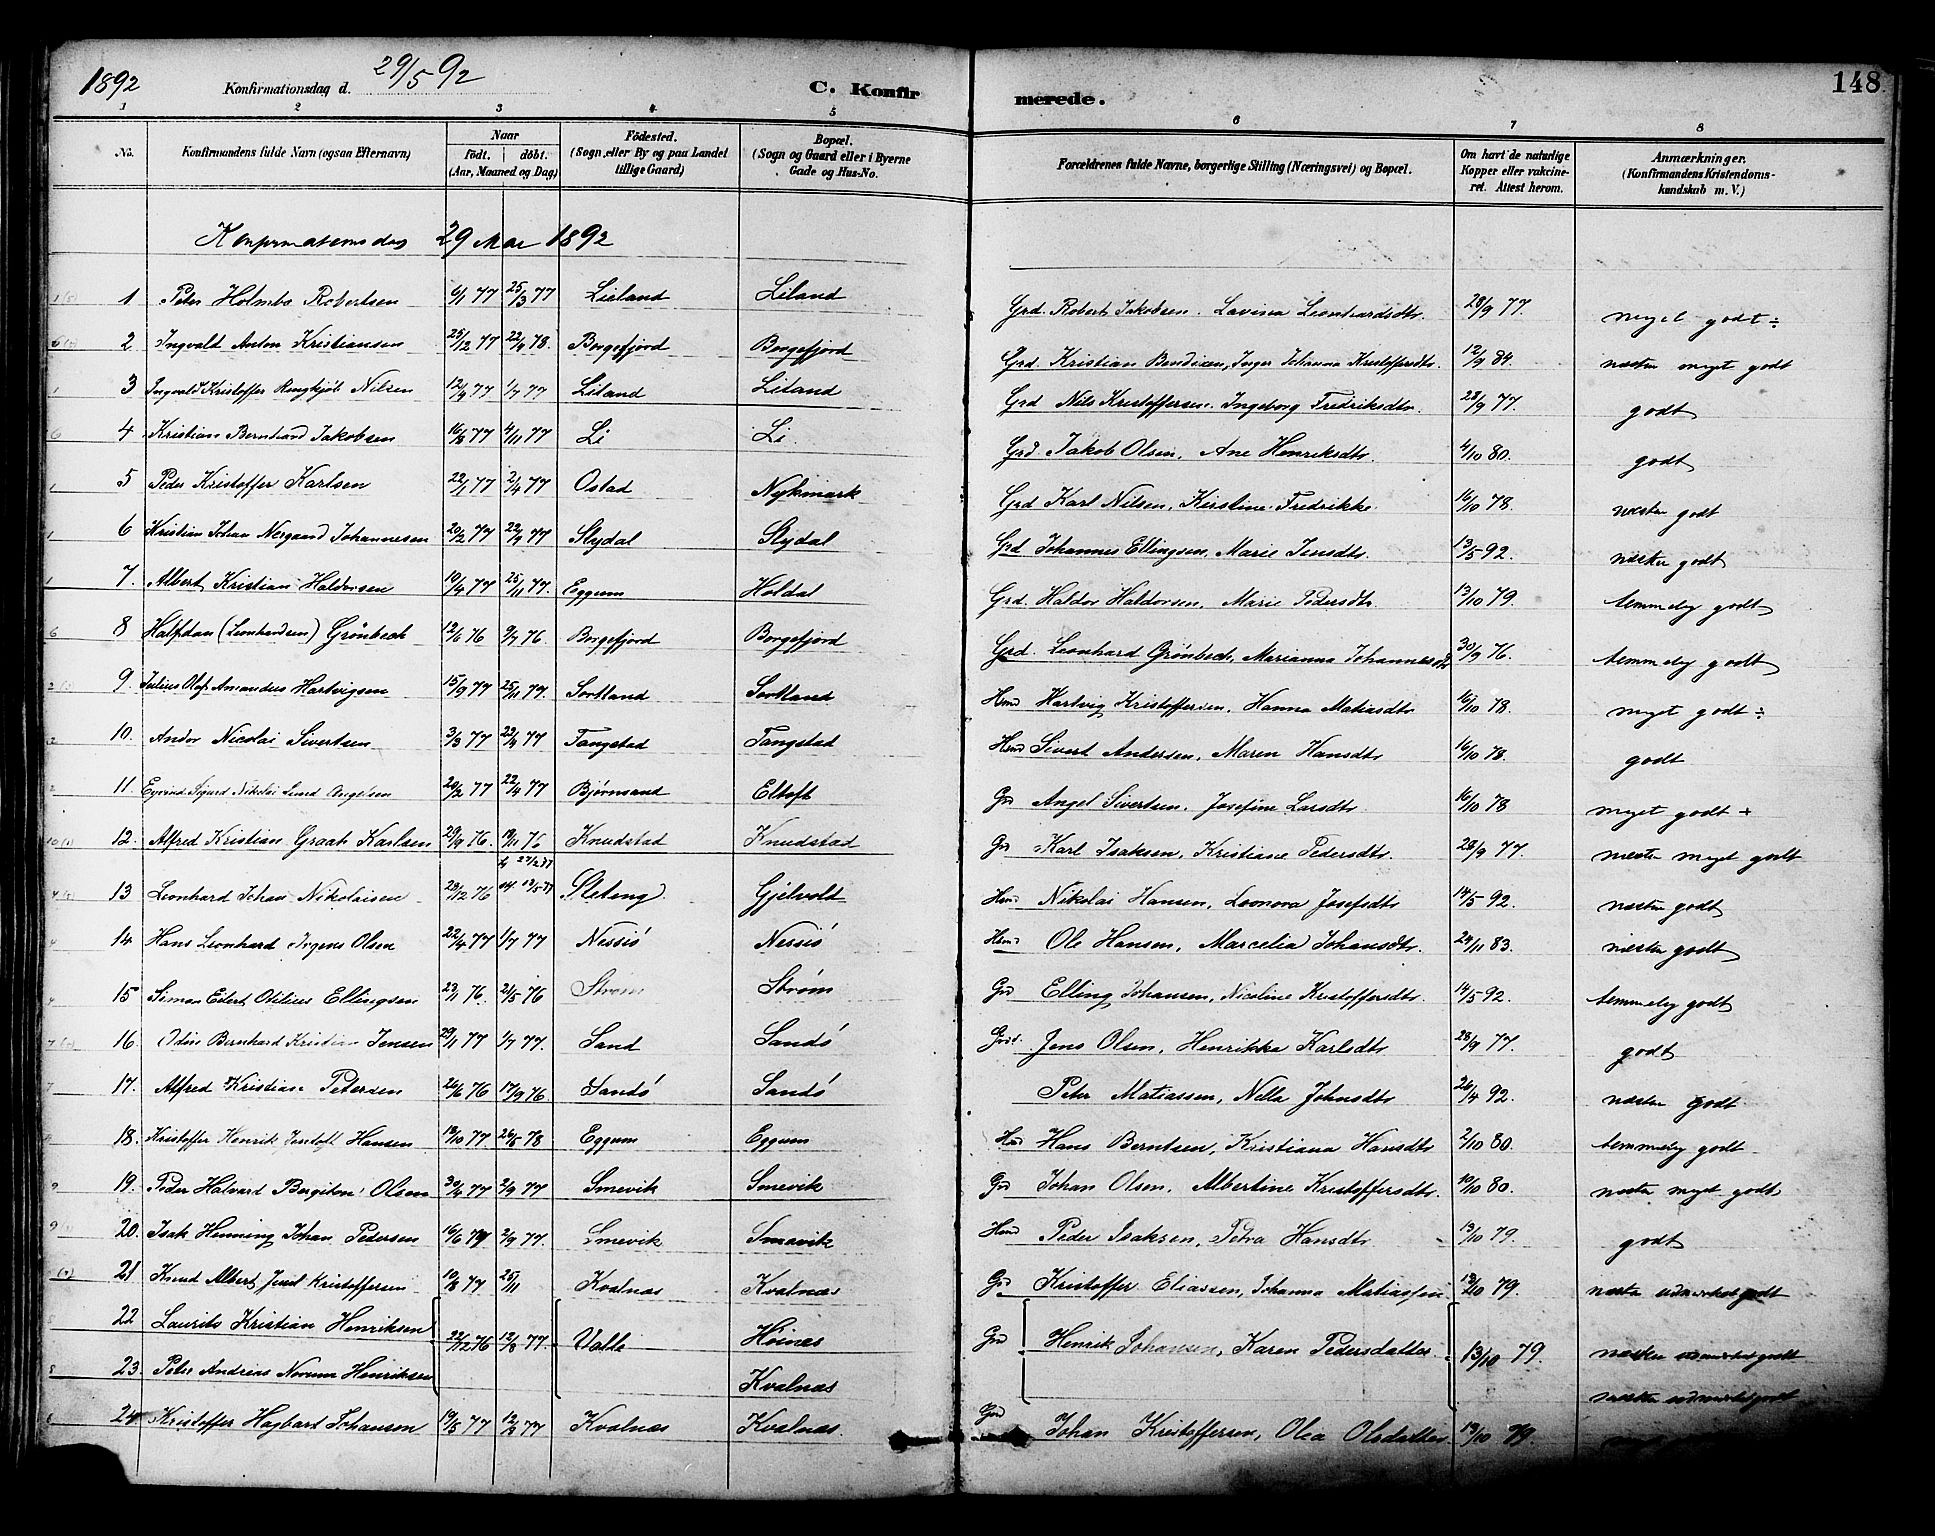 1892 Konfirmationsdag d. 29/5 92 C. Konfirmerede. 148
1 2 3 4 5 6 7 8
No. Konfirmandens fulde Navn (ogsaa Efternavn) Naar födt. döbt. (Aar, Maaned og Dag) Födested. (Sogn eller By og paa Landet tillige Gaard) Bopæl. (Sogn og Gaard eller i Byerne Gade og Hus-No. Forældrenes fulde Navne, borgerlige Stilling (Næringsvei) og Bopæl. Om havt de naturlige Kopper eller vakcineret. Attest herom. Anmærkninger. (Konfirmandens Kristendomskundskab m. V.)
Konfirmationsdag 29 Mai 1892
1 Peter Holmbo Robertsen 6/1 77 25/3 77 Liland Liland Grd. Robert Jakobsen. Lavina Leonhardsdtr. 28/9 77. meget godt ÷
2 Ingvald Anton Kristiansen 25/12 77 22/4 78. Borgefjord Borgefjord Grd. Kristian Bendixen, Inger Johanna Kristoffersdtr. 12/9 84. næsten meget godt
3 Ingvald Kristoffer Nilsen 12/4 77 1/7 77 Liland Liland Grd Nils Kristoffersen. Ingeborg Fredriksdtr. 28/9 77. godt
4 Kristian Bernhard Jakobsen 16/8 77 4/11 77 Li Li. Grd. Jakob Olsen, Ane Henriksdtr. 4/10 80. godt
5 Peder Kristoffer Karlsen 22/1 77 2/4 77 Ostad Nykmark Grd Karl Nilsen, Kirstine Fredrikke. 16/10 78. næsten godt
6 Kristian Johan Nergaard Johannesen 20/2 77 22/4 77 Slydal Slydal Grd Johannes Ellingsen, Marie Jensdtr. 13/5 92. næsten godt
7. Albert Kristian Haldorsen 10/4 77 25/11 77. Eggum Holdal Grd. Haldor Haldorsen, Marie Pedersdtr. 13/10 79. temmelig godt
8 Halfdan (Leonhardsen) Grönbech 12/6 76 9/7 76. Borgefjord Borgefjord Grd Leonhard Grønbech, Marianna Johannesdtr 30/9 76. temmelig godt
9 Julius Olaf Amandus Hartvigsen 15/9 77 25/11 77. Sortland Sortland Hmd Hartvig Kristoffersen, Hanna Matiasdtr 16/10 78. meget godt ÷
10. Andor Nicolai Sivertsen 3/3 77 22/4 77 Tangstad Tangstad Hmd Sivert Andersen, Maren Hansdtr 16/10 78. godt
11. Eyvind Sigurd Nikolai Lund Angelsen 20/2 77 22/4 77 Bjørnsand Eltoft Grd Angel Sivertsen, Josefine Larsdtr 16/10 78 meget godt +
12. Alfred Kristian Graah Karlsen 29/9 76. 19/11 76 Knudstad Knudstad Grd Karl Isaksen, Kristiane Pedersdtr. 28/9 77. næsten meget godt
13 Leonhard Johan Nikolaisen 23/12 76 13/5 77 Sleteng Gjelvold Hmd Nikolai Hansen, Leonora Josefsdtr 14/5 92. næsten godt
14 Hans Leonhard Olsen 22/4 77 1/7 77 Nessiö Nessiö Hmd Ole Hansen, Marcelia Johansdtr. 24/11 83. næsten godt
15 Simon Edert Otilius Ellingsen 23/1 76. 21/5 76 Strøm Strøm Grd Elling Johansen, Nicoline Kristoffersdtr. 14/5 92. temmelig godt
16. Odin Bernhard Kristian Jensen 29/1 77 1/7 77. Sand Sandö Grd. Jens Olsen, Henrikka Karlsdtr 28/9 77. godt
17. Alfred Kristian Petersen 26/6 76 17/9 76 Sandö Sandö Peter Matiassen, Nella Johnsdtr 26/4 92. næsten godt.
18. Kristoffer Henrik Hansen 13/10 77. 26/5 78 Eggum Eggum Hmd Hans Berntsen, Kristiana Hansdtr 2/10 80. temmelig godt
19. Peder Halvard Bergiton Olsen 30/4 77 2/9 77 Smevik Smevik Grd Johan Olsen, Albertine Kristoffersdtr. 10/10 80. næsten meget godt
20. Isak Henning Johan Pedersen 16/6 77 2/9 77. Smevik Smevik Hmd Peder Isaksen, Petra Hansdtr 13/10 79. godt
21 Knud Albert Juul Kristoffersen 10/8 77 25/11 Kvalnæs Kvalnæs Grd Kristoffer Eliassen, Johanna Matiassen 13/10 79. næsten udmærket godt
22 Laurits Kristian Henriksen 22/12 76 12/3 77. Valle Höinæs Grd Henrik Johansen, Karen Pedersdatter 13/10 79. næsten udmærket godt
23. Peter Andreas Norum Henriksen Kvalnæs næsten udmærket godt
24 Kristoffer Hagbart Johansen 19/5 77 12/8 77 Kvalnæs Kvalnæs. Grd Johan Kristoffersen, Olea Olsdatter 13/10 79.